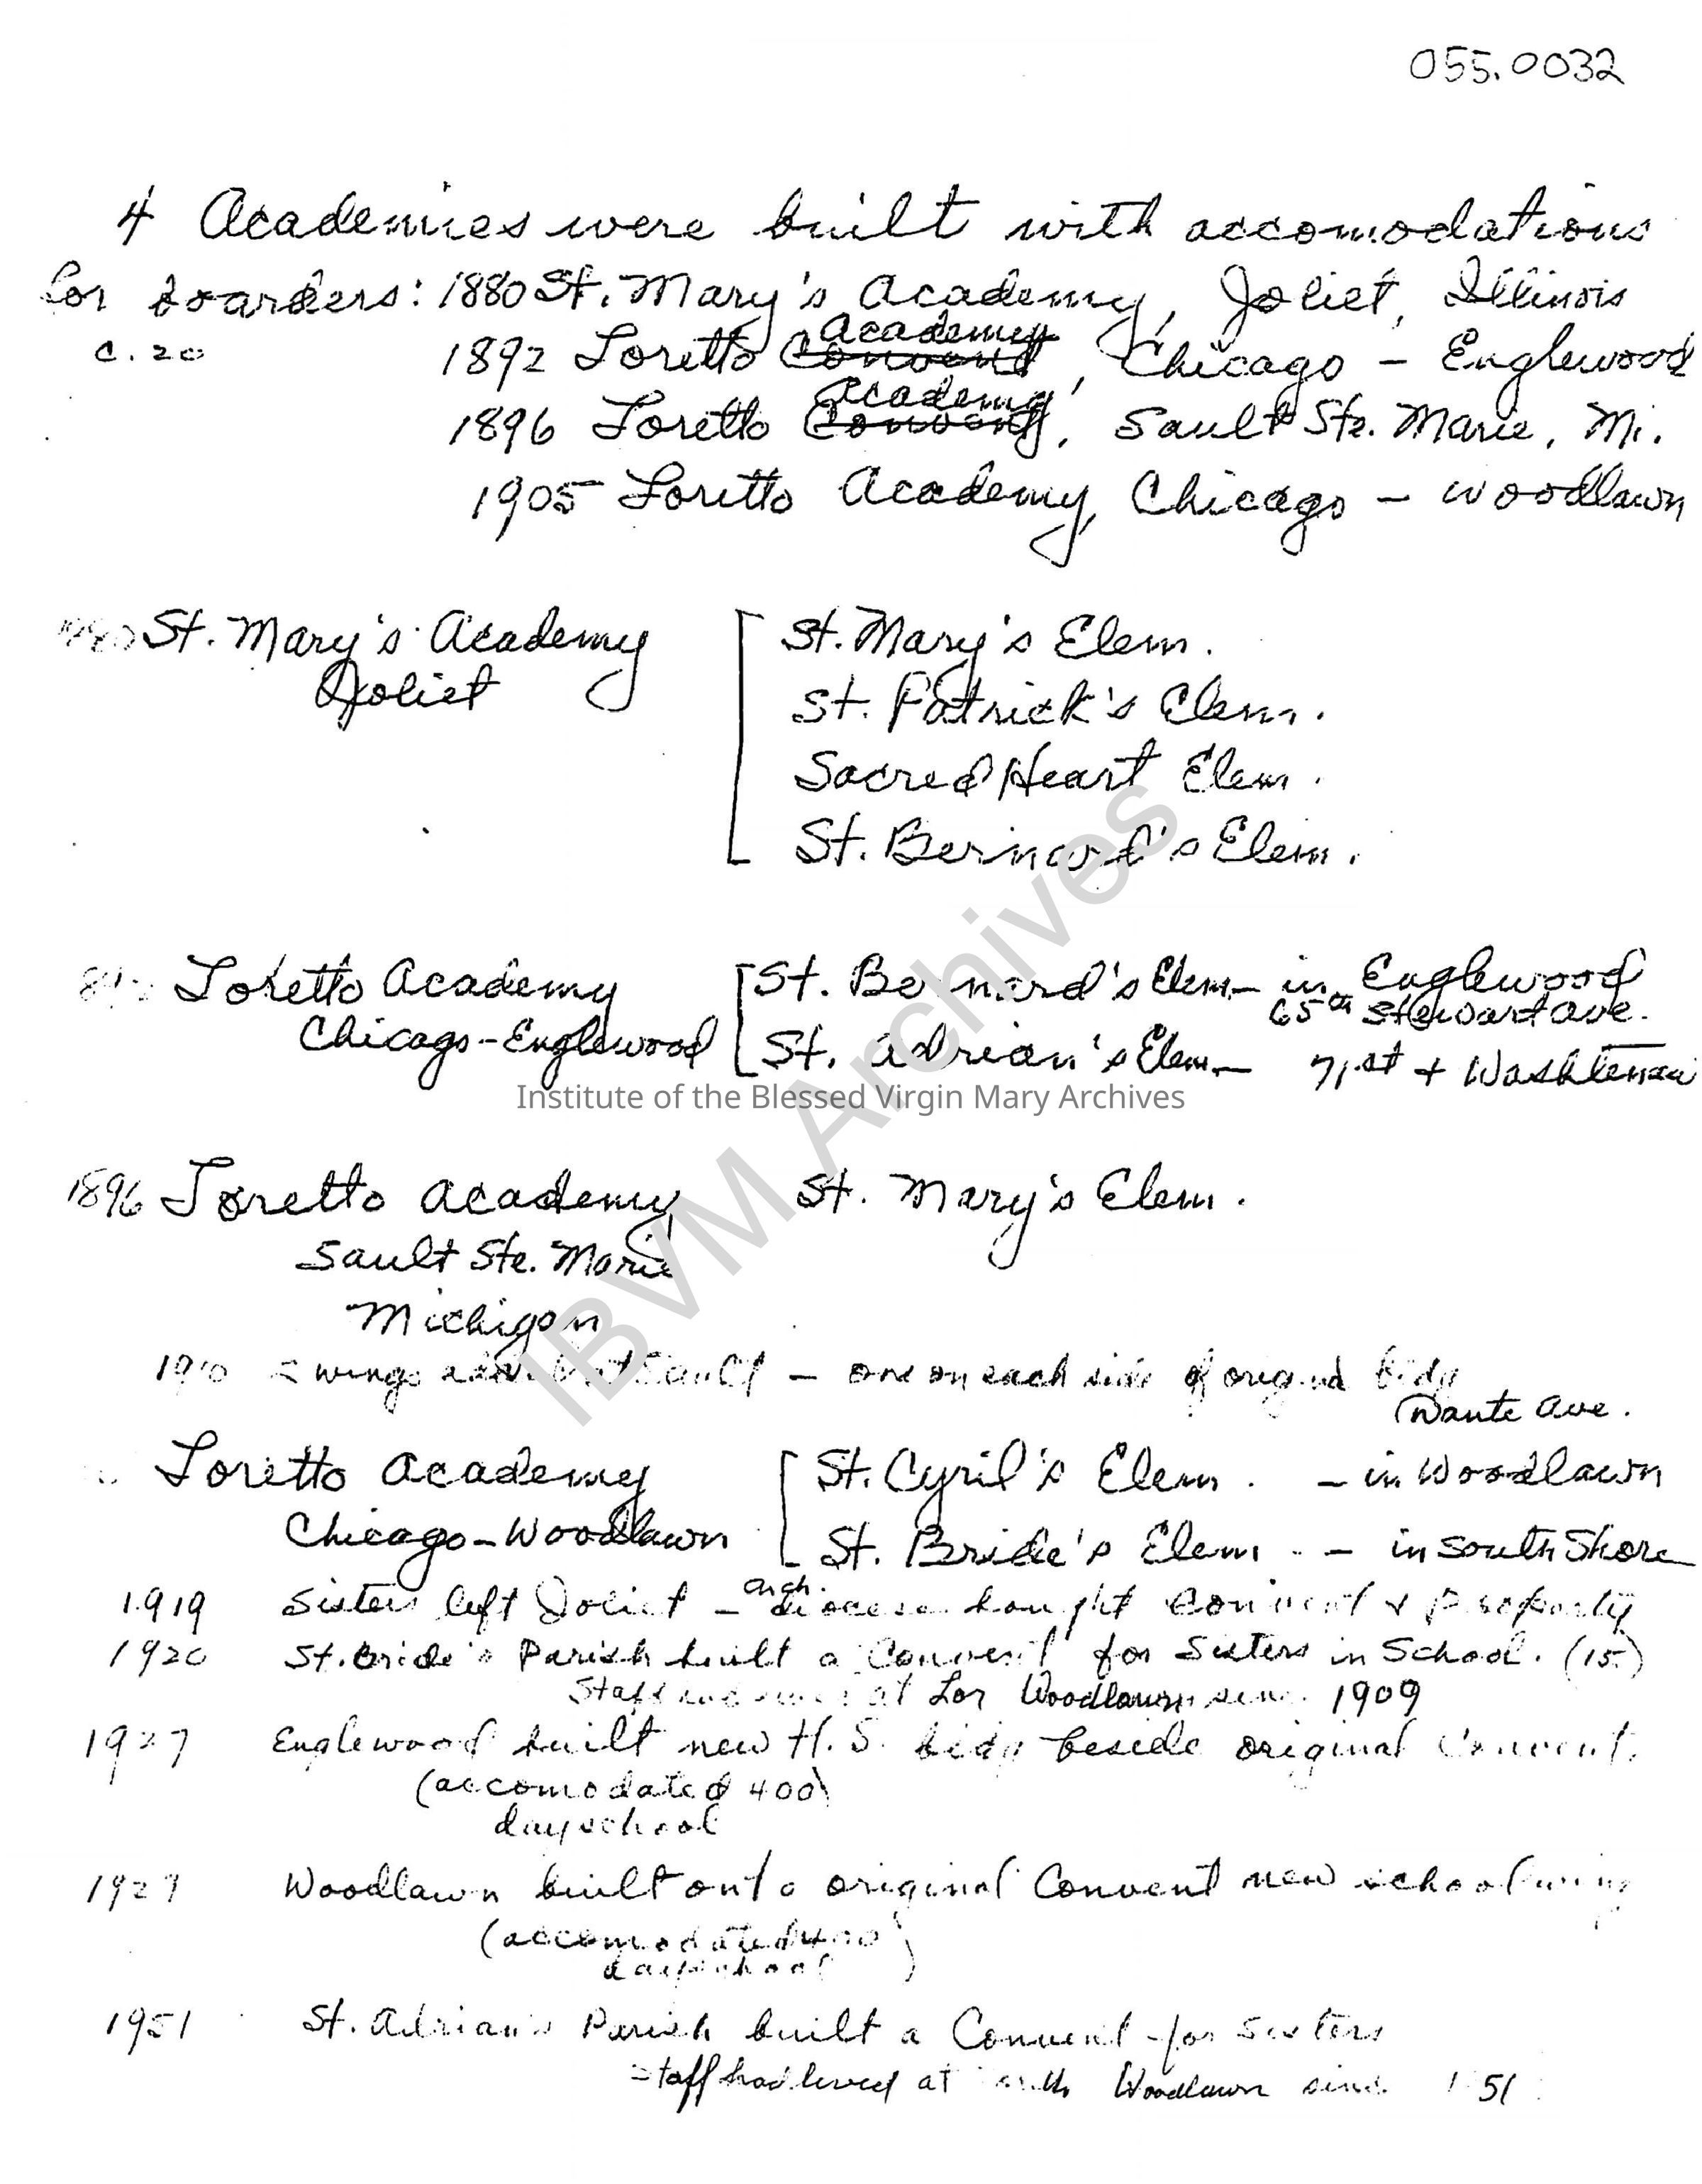 055.0032
4 Academies were built with accomodations
for boarders: 1880 St. Mary's Academy, Joliet, Illinois
c. 20 1892 Loretto Convent Academy, Chicago - Englewood
1896 Loretto Convent Academy, Sault Ste. Marie, Mi.
1905 Loretto Academy, Chicago - Woodlawn
1880 St. Mary's Academy
Joliet
St. Mary's Elem.
St. Patrick's Elem.
Sacred Heart Elem.
St. Bernard's Elem.
Loretto Academy
Chicago-Englewood
St. Bernard's Elem - in Englewood
65th Stewart Ave.
St. Adrian's Elem - 71st + Washtenaw
Institute of the Blessed Virgin Mary Archives
IBVM Archives
1896 Loretto Academy
Sault Ste. Marie
Michigan
St. Mary's Elem.
wings Sault - one on each side of original bldg
Dante Ave.
Loretto Academy
Chicago-Woodlawn
St. Cyril's Elem. - in Woodlawn
St. Bride's Elem. - in South Shore
1919 Sisters left Joliet - archdiocese bought Convent & Property
1920 St. Bride's Parish built a Convent for Sisters in School. (15)
Staff at Lor Woodlawn since 1909
1927 Englewood built new H.S. bldg beside original Convent.
(accomodated 400)
day school
1927 Woodlawn built onto original Convent new school wing
(accomodated 400)
day school
1951 St. Adrian's Parish built a Convent for Sisters
Staff had lived at Woodlawn since